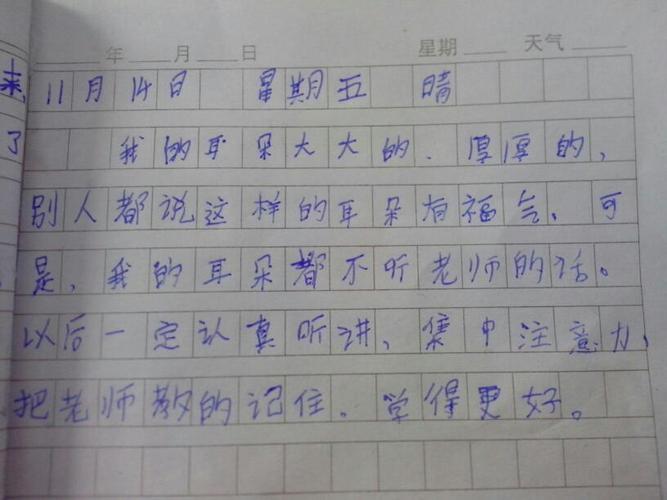 年 月 日 星期 天气
来 11月14日 星期五 晴
了 我的耳朵大大的、厚厚的,
别人都说这样的耳朵有福气、可
是,我的耳朵都不听老师的话。
以后一定认真听讲、集中注意力,
把老师教的记住、学得更好。